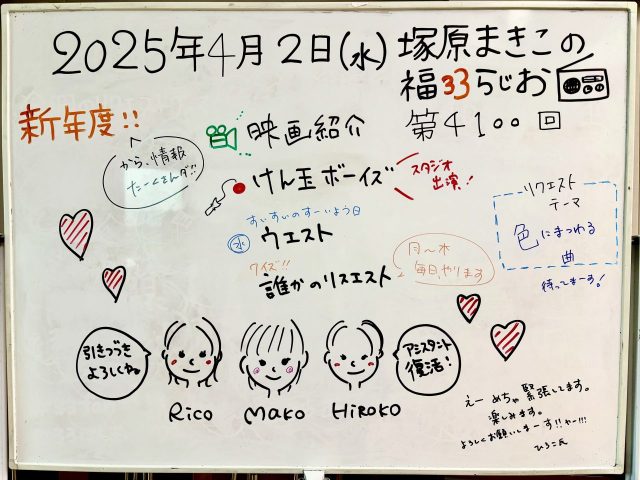 2025年4月2日(水) 塚原まきこの
福33らじお
新年度!!
から、情報
たーくさんダ!!
映画紹介
第4100回
けん玉ボーイズ
スタジオ
出演!
すいすいのすーいよう日
水 ウエスト
クイズ!!
誰かのリスエスト
月〜木
毎日、やります
リクエスト
テーマ
色にまつわる
曲
待ってまーす!
引きつづき
よろしくね。
アシスタント
復活!
Rico MaKo HiROKO
えー めちゃ緊張してます。
楽しみます。
よろしくお願いしまーす!!ヤー!!!
ひろこ氏